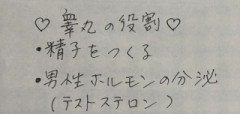 ♡睾丸の役割♡
・精子をつくる
・男性ホルモンの分泌
(テストステロン)